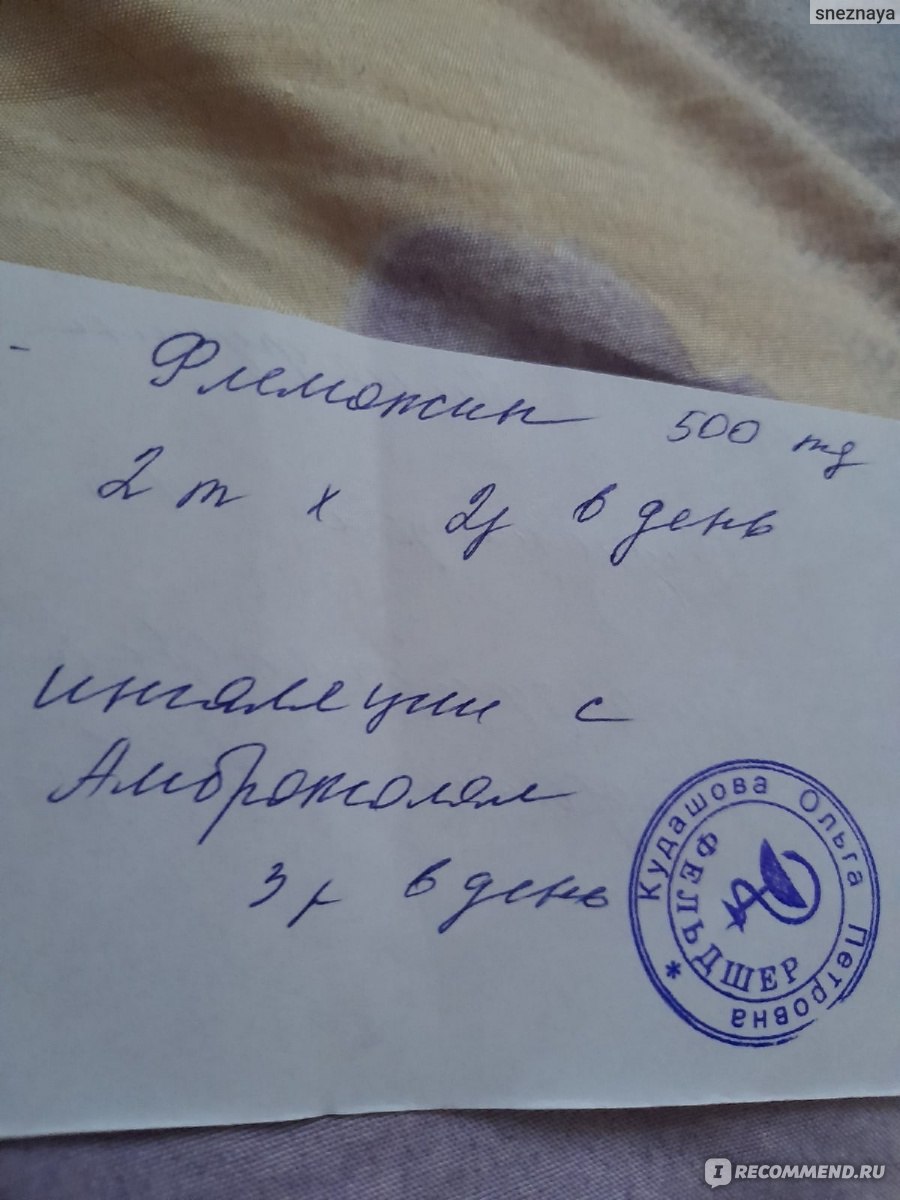 sneznaya
- Флемоксин 500 мg
2 т х 2р в день
ингаляции с
Амброксолом
3 р в день
Кудашова Ольга Петровна *
ФЕЛЬДШЕР
IRECOMMEND.RU